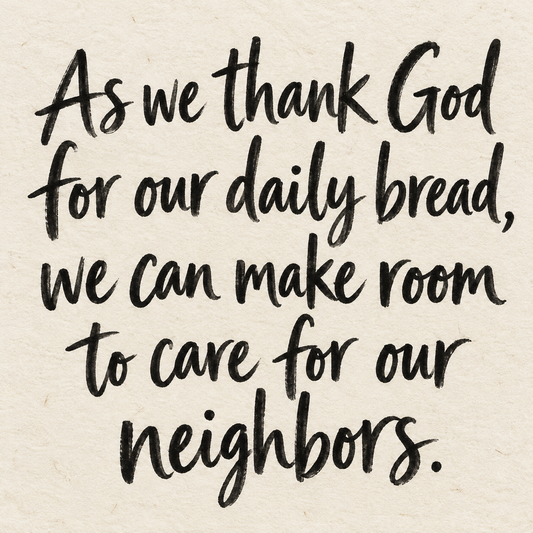 As we thank God
for our daily bread,
we can make room
to care for our
neighbors.